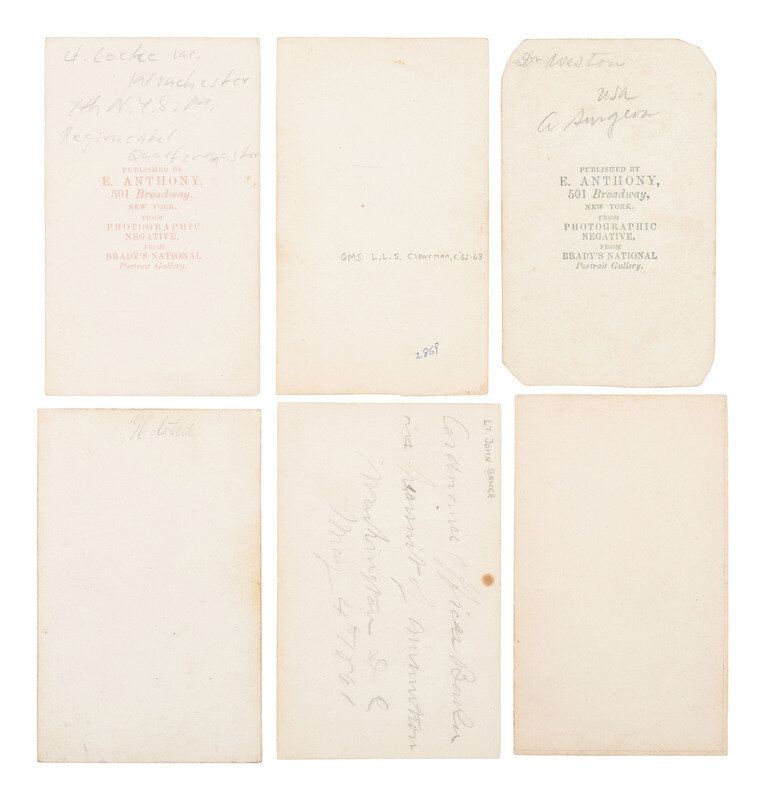 Lt. Locke W.
Winchester
7th N.Y.S.M.
Regimental
Quartermaster
PUBLISHED BY
E. ANTHONY,
501 Broadway,
NEW YORK.
FROM
PHOTOGRAPHIC
NEGATIVE,
FROM
BRADY'S NATIONAL
Portrait Gallery.
QMS L.L.S. Clearman, c. 62-63
2869
Dr Weston
USA
A Surgeon
PUBLISHED BY
E. ANTHONY,
501 Broadway,
NEW YORK.
FROM
PHOTOGRAPHIC
NEGATIVE,
FROM
BRADY'S NATIONAL
Portrait Gallery.
LT. JOHN BAKER
Ordnance Officer Baker
in pursuit of Ammunition
Washington D C
May 4th 1861